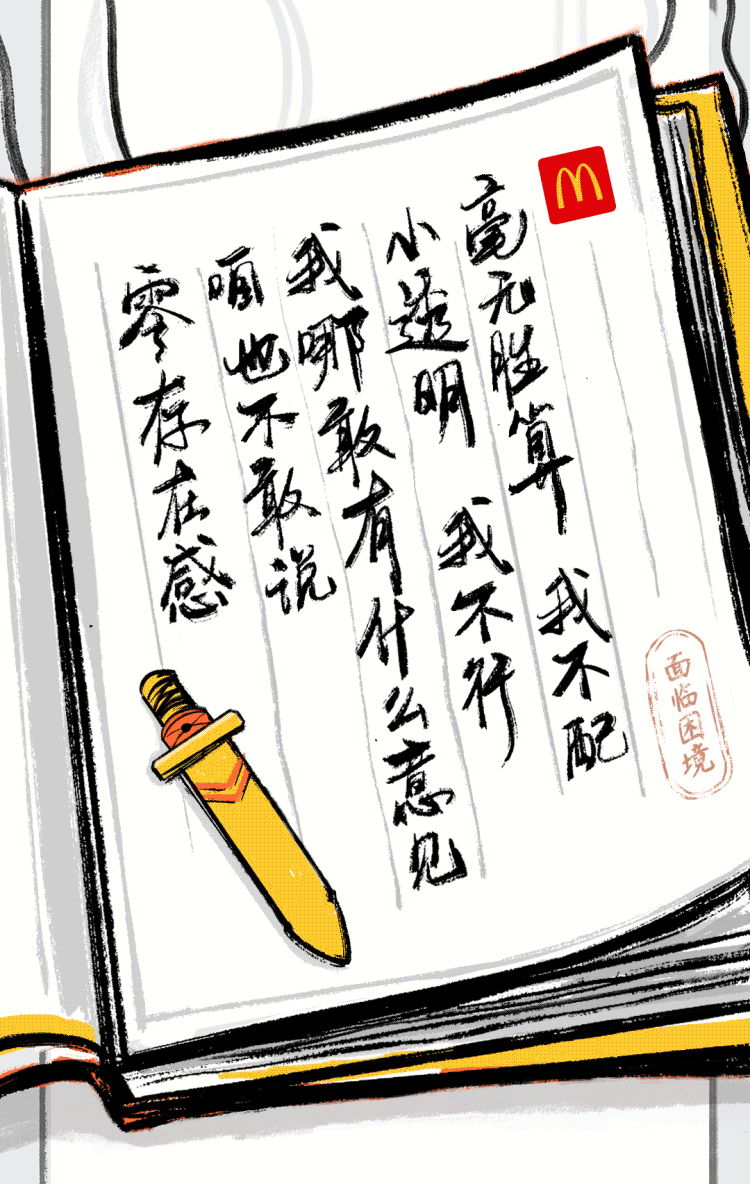 毫无胜算 我不配
小透明 我不行
我哪敢有什么意见
咱也不敢说
零存在感
面临困境